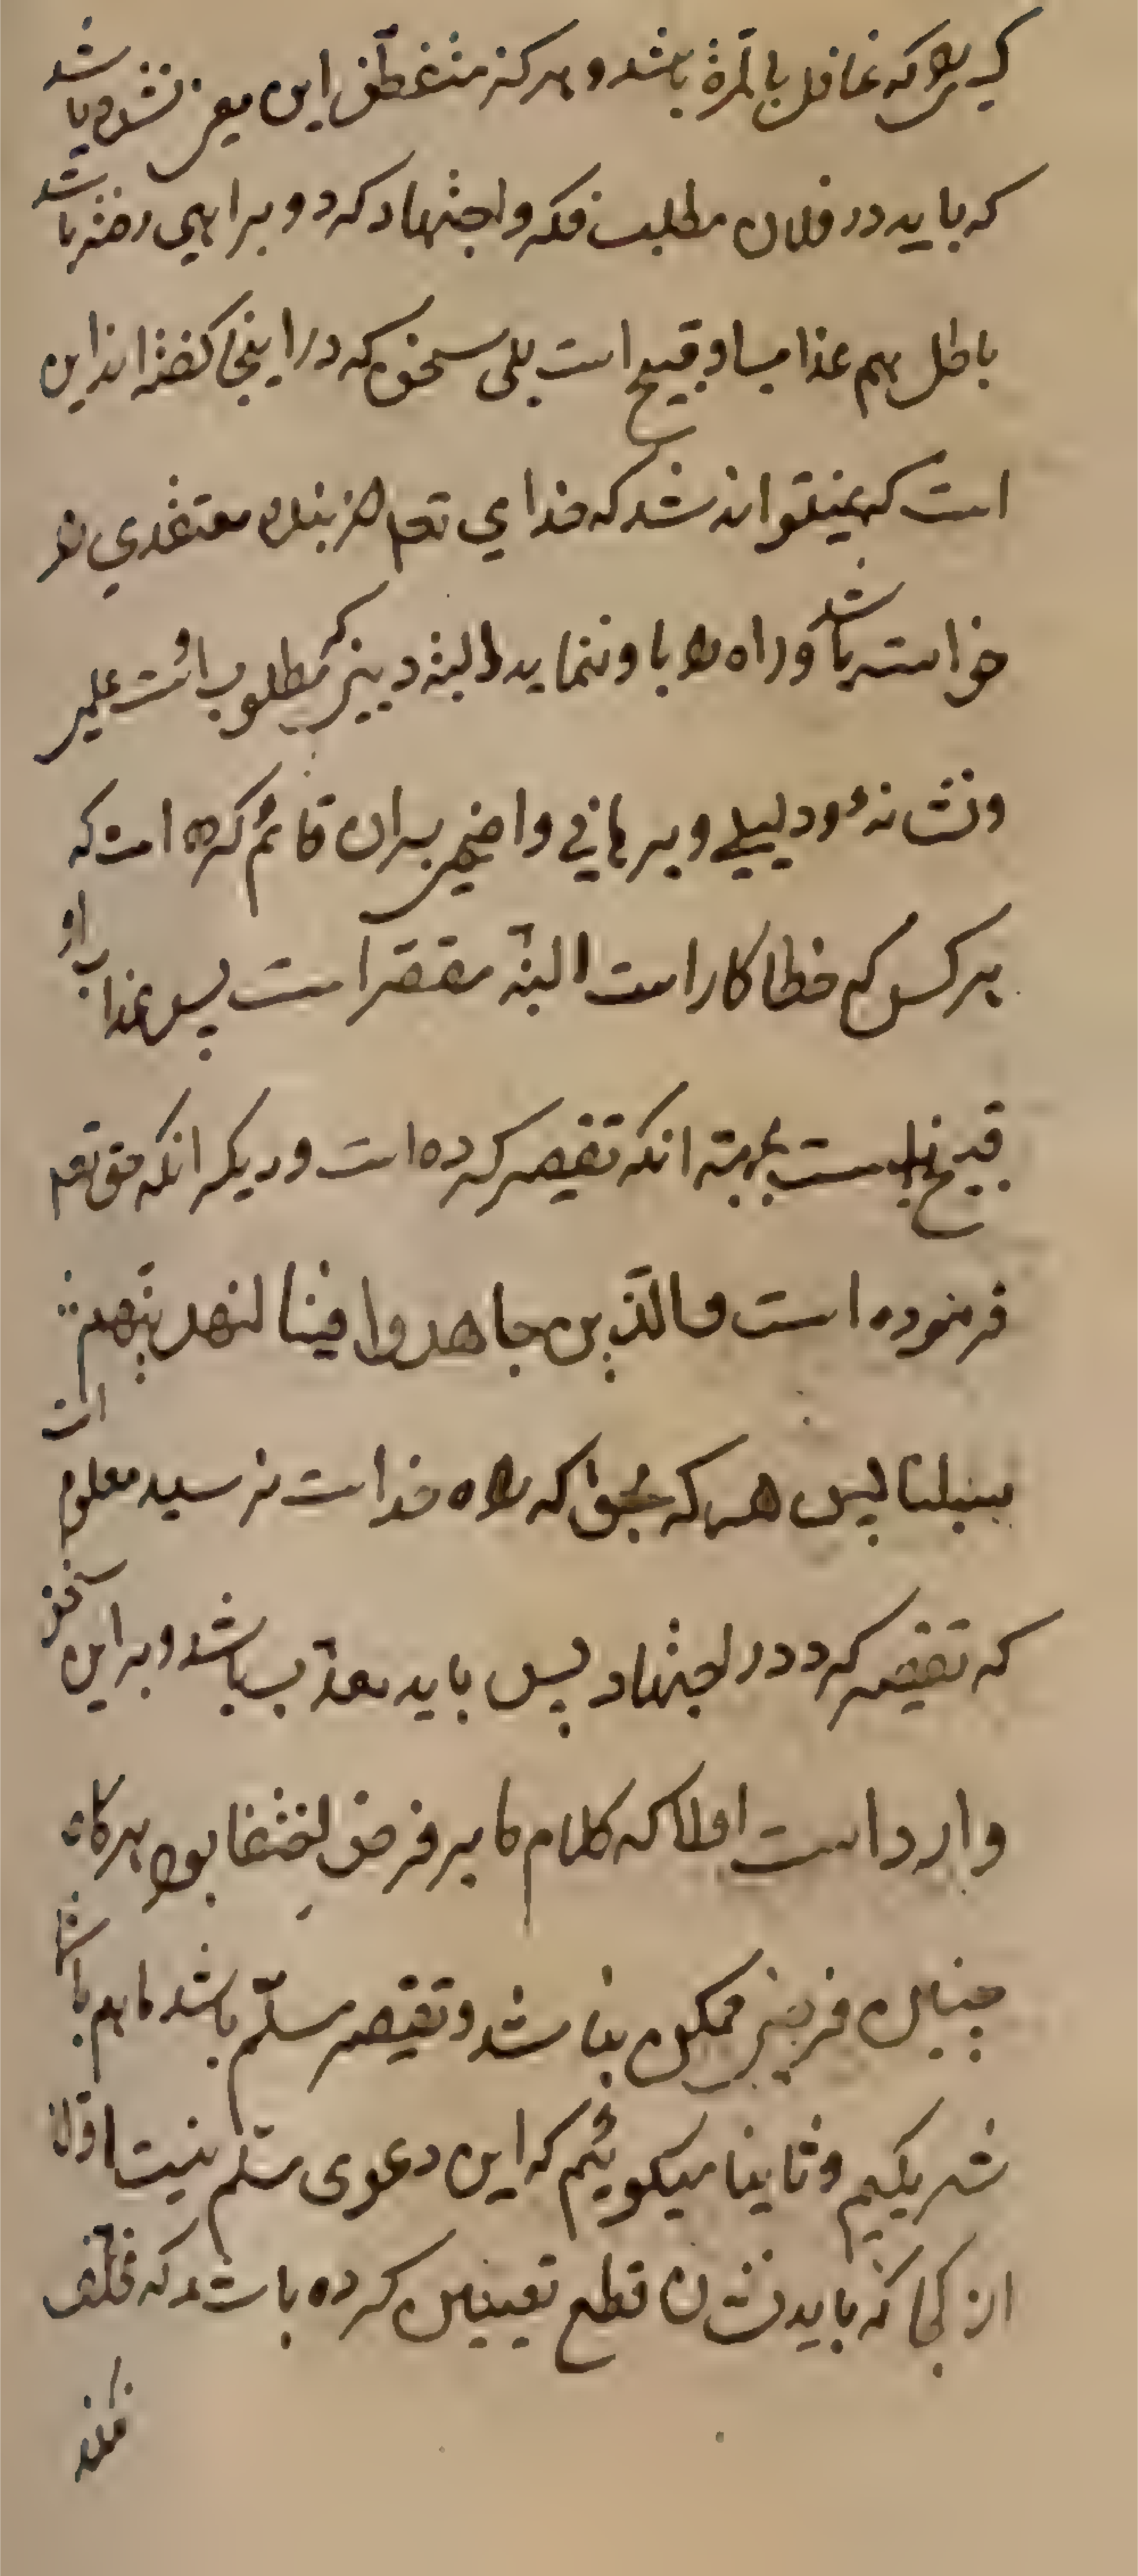 کسی را که غافل بالمرة باشد و هرگز متفطّن این معنی نشده باشد
که باید در فلان مطلب فکر و اجتهاد کرد و براهی رفته باشد
باطل هم عذاب او قبیح است بلی سخنی که در اینجا گفته اند این
است که نمیتواند شد که خدای تعم از بنده معتقدی را
خواسته باشد و راه را باو ننماید البته دینی که مطلوب است علمی
و نشانهٔ و دلیلے و برهانی واضحی بران قائم کرده است که
هر کس که خطا کار است البته مقصّر است پس عذاب او
قبیح نیست بجهة انکه تقصیر کرده است و دیگر انکه حق تعم
فرموده است والّذین جاهدوا فینا لنهدینّهم
سبلنا پس هر که بحق که راه خداست نرسید معلوم است
که تقصیر کرد در اجتهاد پس باید معذّب باشد و بر این سخن
وارد است اولا که کلام ما بر فرض بود هرگاه
چنین فرضی ممکن نباشد و تقصیر مسلّم باشد ما هم با شما
شریکیم و ثانیا میگوئیم که این دعوی مسلّم نیست اوّلا
از کجا که باید نشان قطع تعیین کرده باشد که تخلّف
نکند